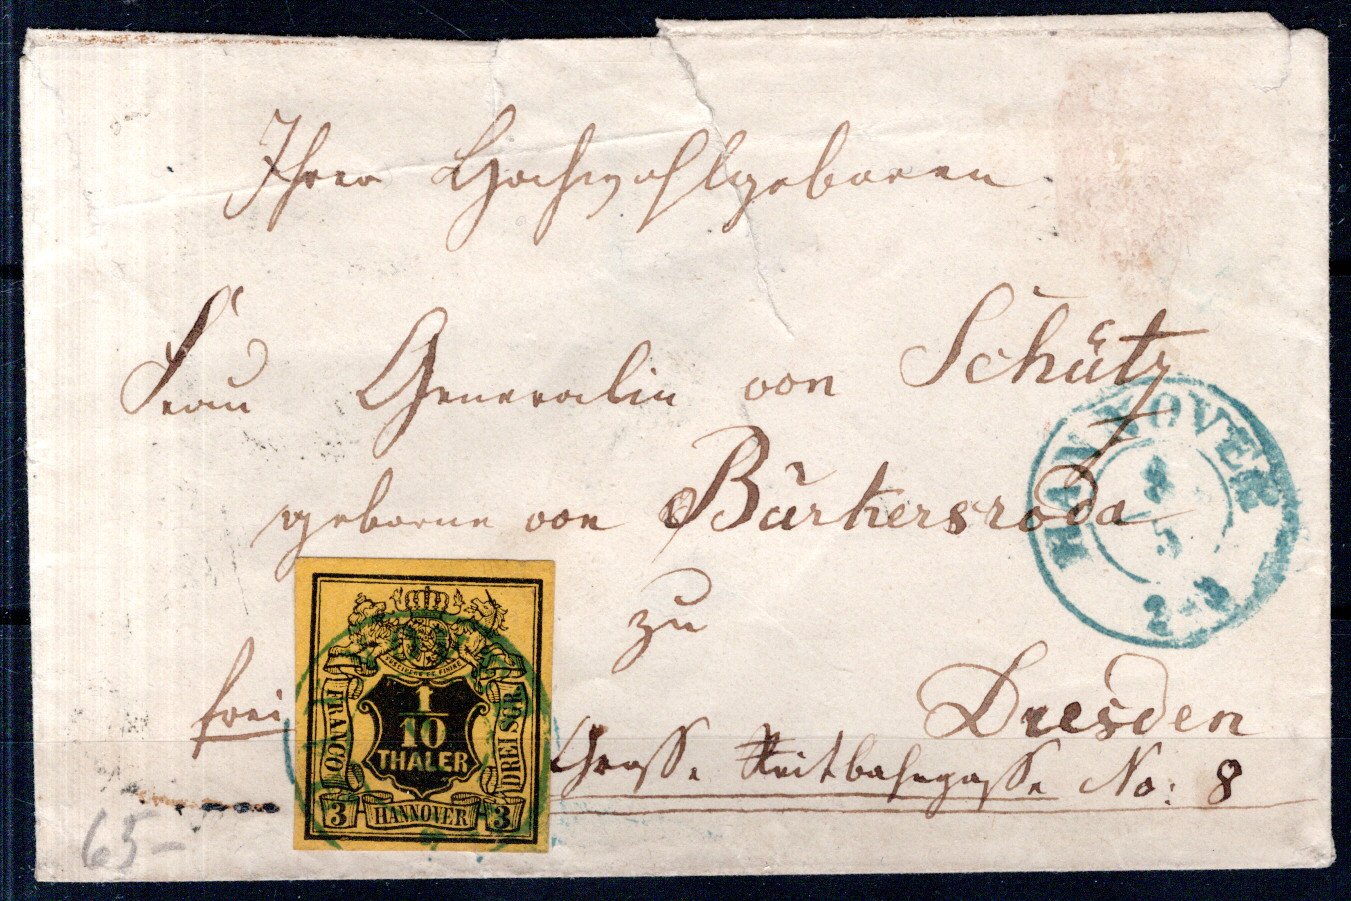 Ihrer Hochwohlgeboren
Frau Generalin von Schütz
geborne von Burkersroda
zu
Dresden
frei
Grosse Reitbahngasse No: 8
HANNOVER
5
2-3
1
10
THALER
FRANCO
DREI SGR.
3 HANNOVER 3
65-